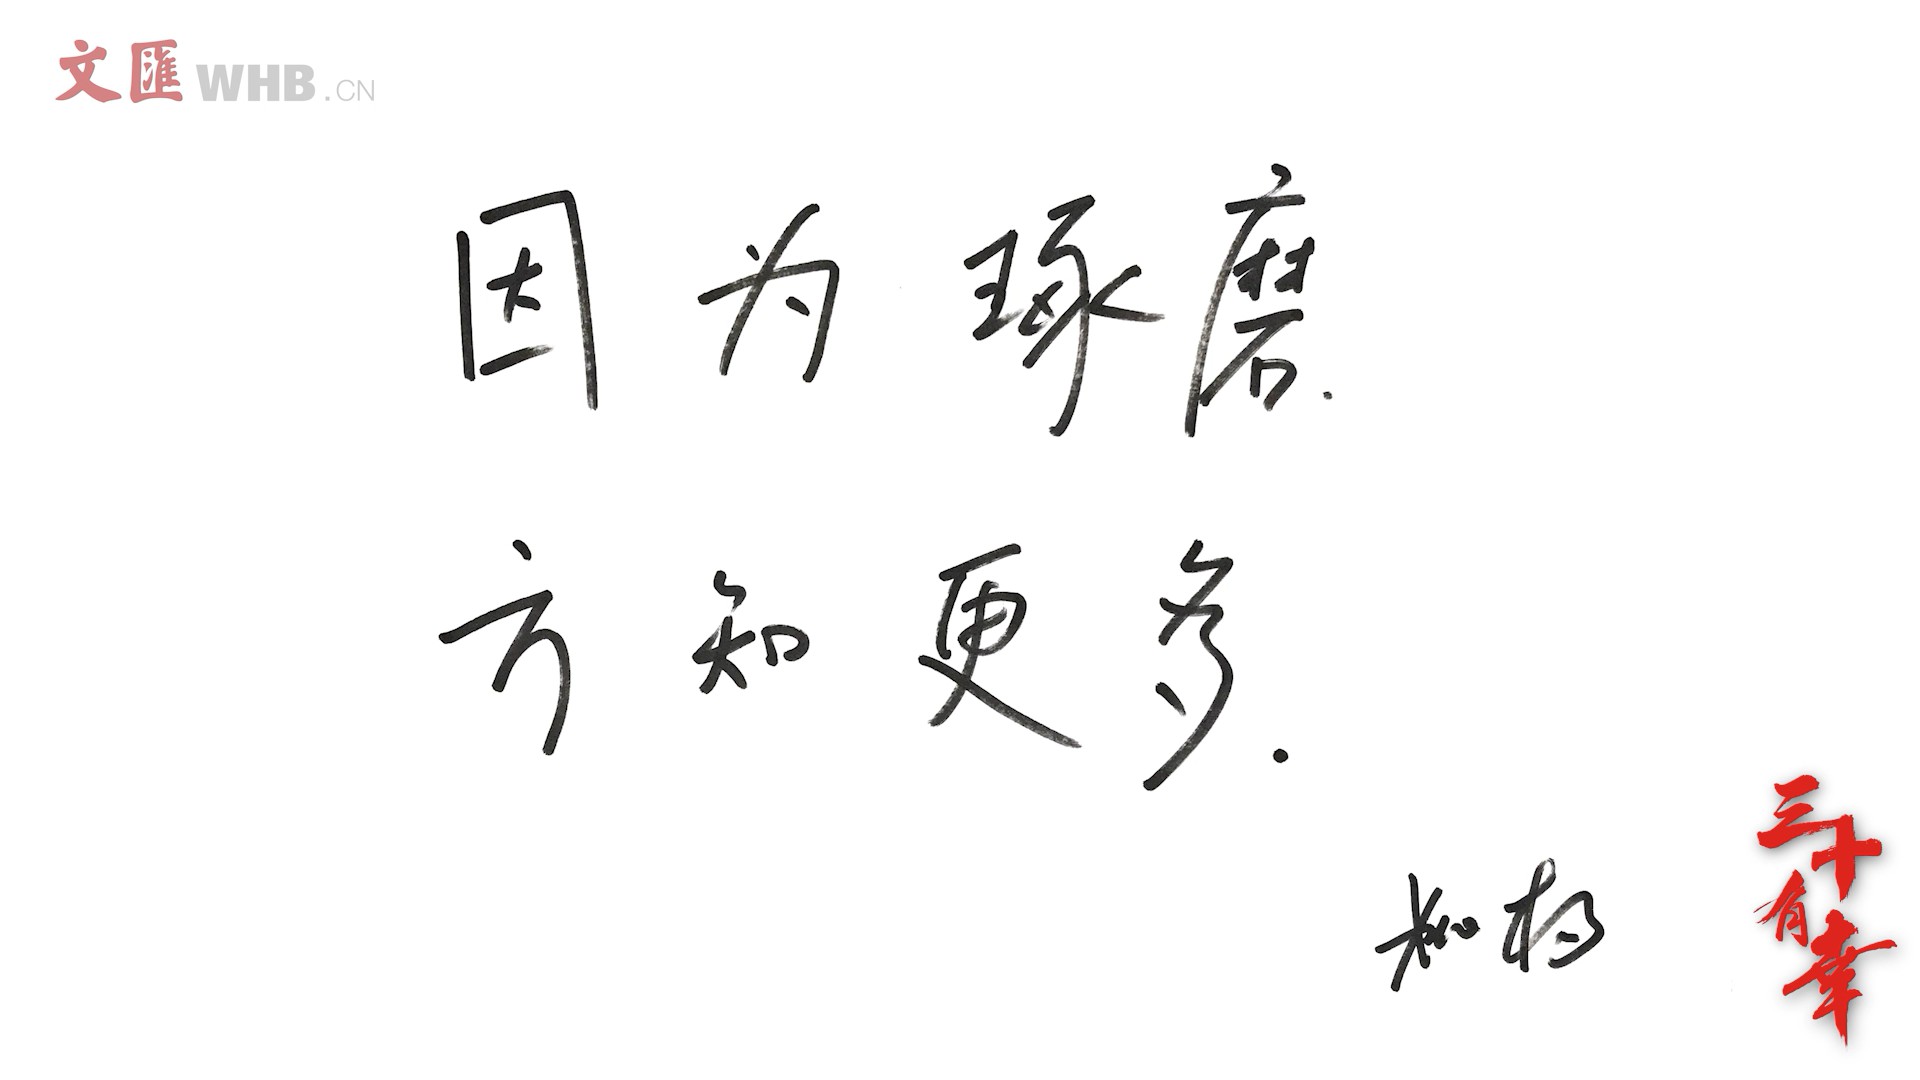 文匯 WHB.CN
因为琢磨.
方知更多.
三十有幸